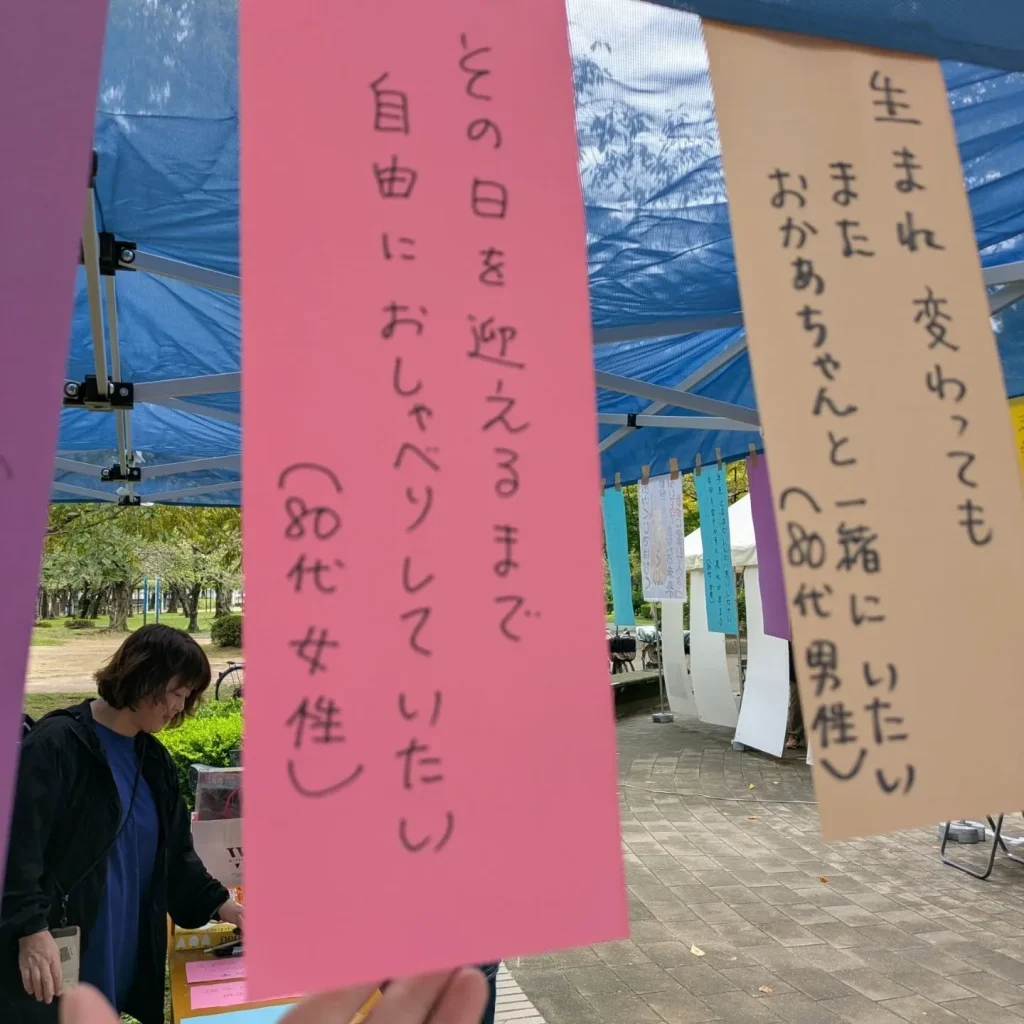 その日を迎えるまで
自由におしゃべりしていたい
(80代女性)
生まれ変わっても
また
おかあちゃんと一緒にいたい
(80代男性)